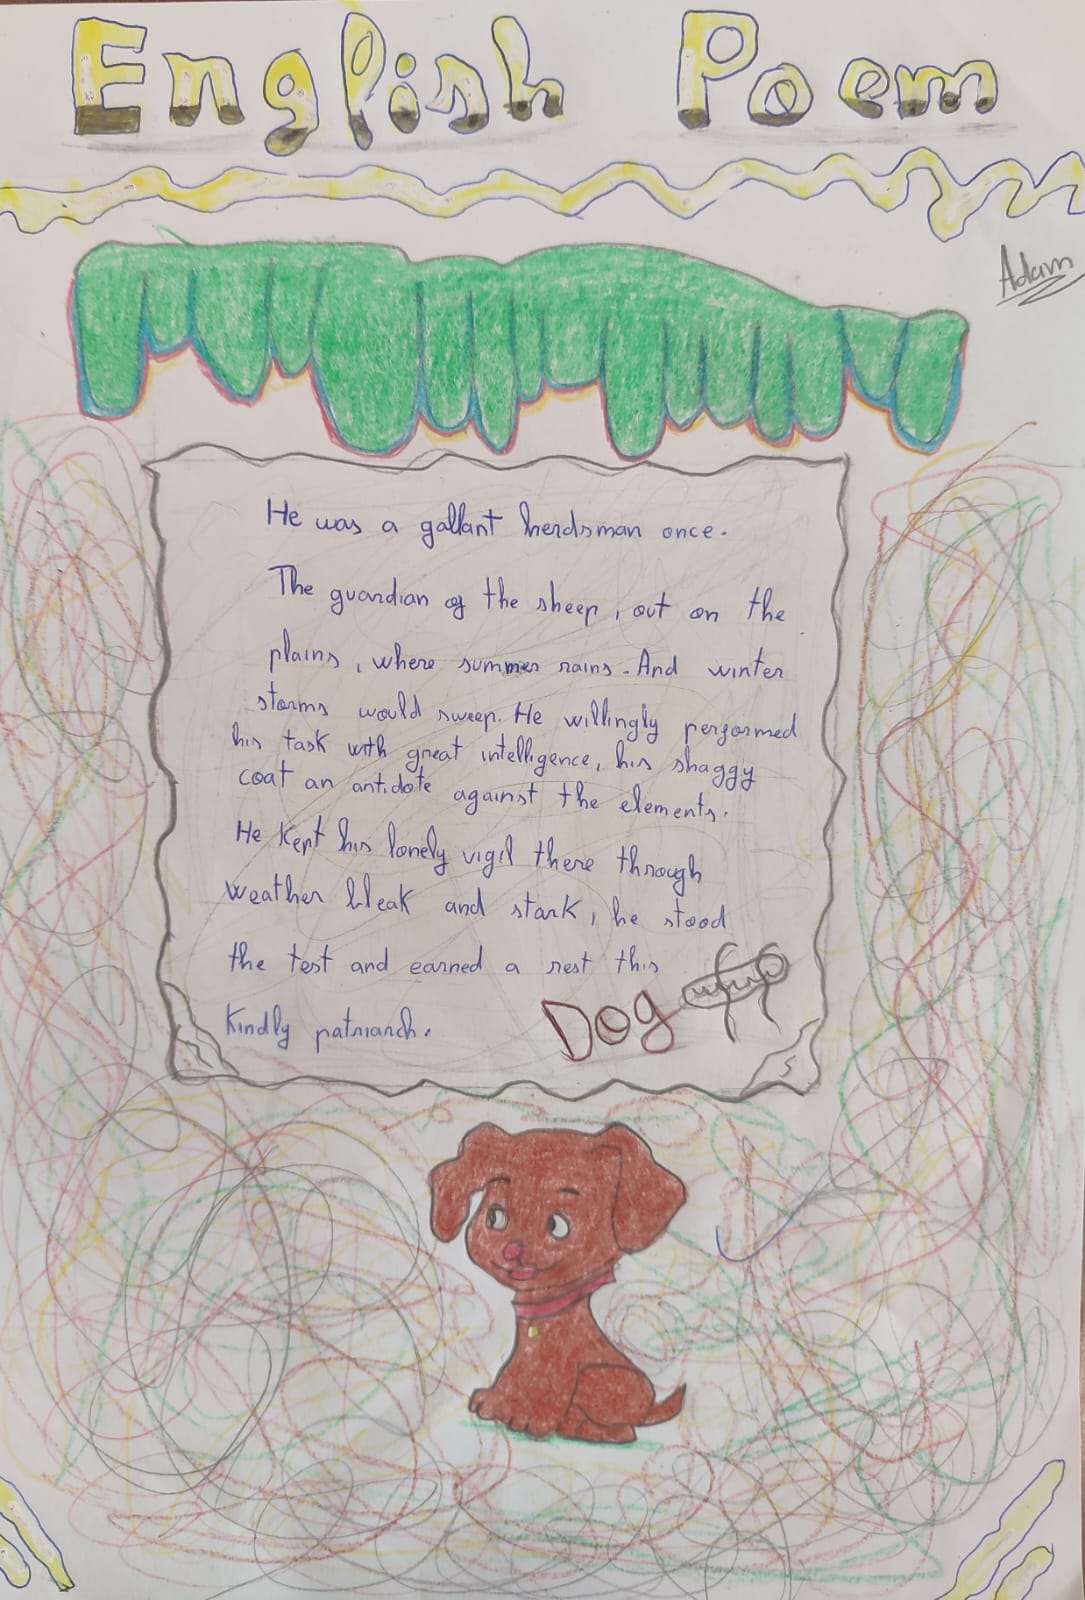 English Poem
Adam
He was a gallant herdsman once.
The guardian of the sheep, out on the
plains, where summer rains. And winter
storms would sweep. He willingly performed
his task with great intelligence, his shaggy
coat an antidote against the elements.
He kept his lonely vigil there through
weather bleak and stark, he stood
the test and earned a rest this
kindly patriarch.
Dog